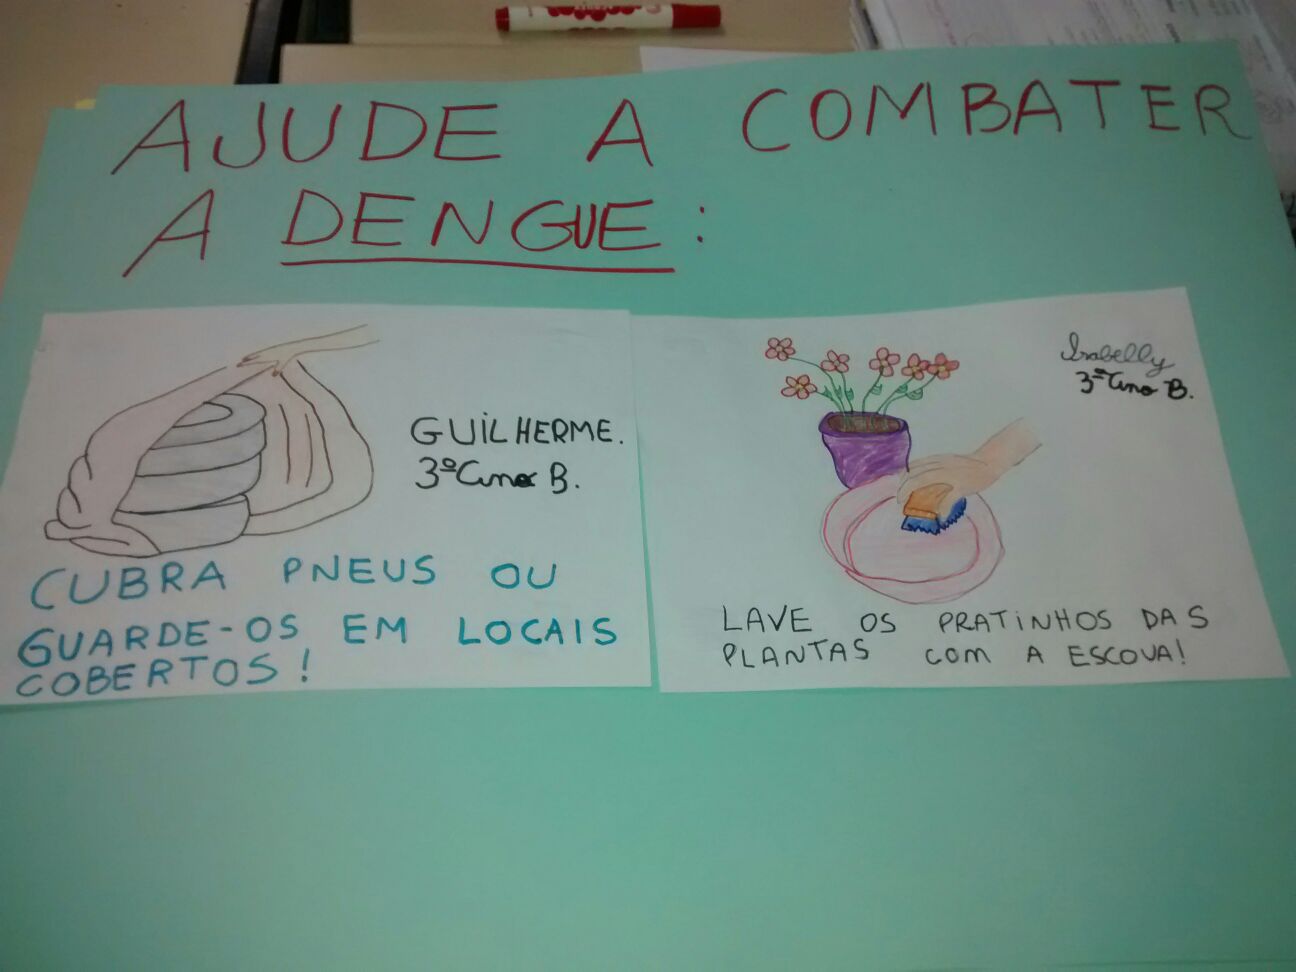 AJUDE A COMBATER
A DENGUE:
GUILHERME.
3º Ano B.
CUBRA PNEUS OU
GUARDE-OS EM LOCAIS
COBERTOS!
Isabelly
3º Ano B.
LAVE OS PRATINHOS DAS
PLANTAS COM A ESCOVA!